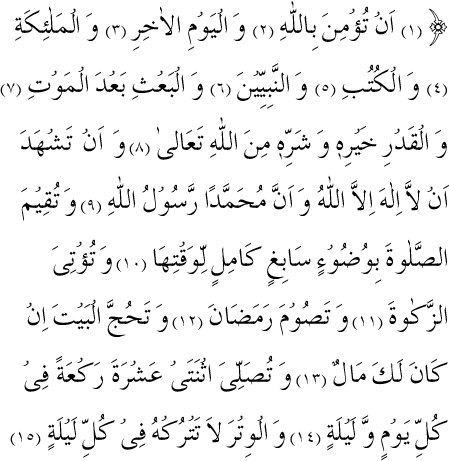 ﴿ (١) اَنْ تُؤْمِنَ بِاللّٰهِ (٢) وَ الْيَوْمِ الْاٰخِرِ (٣) وَ الْمَلٰئِكَةِ
(٤) وَ الْكُتُبِ (٥) وَ النَّبِيِّيْنَ (٦) وَ الْبَعْثِ بَعْدَ الْمَوْتِ (٧)
وَ الْقَدْرِ خَيْرِهٖ وَ شَرِّهٖ مِنَ اللّٰهِ تَعَالىٰ (٨) وَ اَنْ تَشْهَدَ
اَنْ لَّا اِلٰهَ اِلَّا اللّٰهُ وَ اَنَّ مُحَمَّدًا رَّسُوْلُ اللّٰهِ (٩) وَ تُقِيْمَ
الصَّلٰوةَ بِوُضُوْءٍ سَابِغٍ كَامِلٍ لِّوَقْتِهَا (١٠) وَ تُؤْتِىَ
الزَّكٰوةَ (١١) وَ تَصُوْمَ رَمَضَانَ (١٢) وَ تَحُجَّ الْبَيْتَ اِنْ
كَانَ لَكَ مَالٌ (١٣) وَ تُصَلِّىَ اثْنَتَىْ عَشْرَةَ رَكْعَةً فِىْ
كُلِّ يَوْمٍ وَّ لَيْلَةٍ (١٤) وَ الْوِتْرَ لَا تَتْرُكْهُ فِىْ كُلِّ لَيْلَةٍ (١٥)